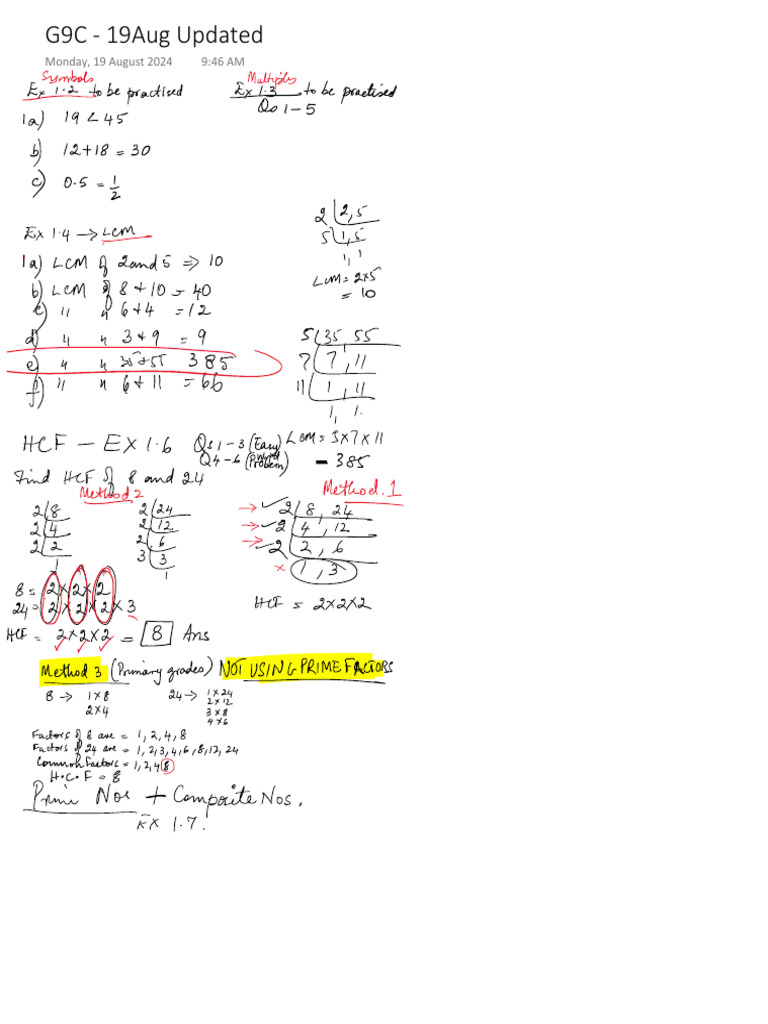 G9C - 19Aug Updated
Monday, 19 August 2024 9:46 AM
Symbols
Ex 1.2 to be practised
Multiples
Ex 1.3 to be practised
Qs 1-5
1a) 19 < 45
b) 12+18 = 30
c) 0.5 = 1/2
Ex 1.4 → LCM
1a) LCM of 2 and 5 ⇒ 10
b) LCM of 8 + 10 = 40
c) " of 6 + 4 = 12
d) " " 3 + 9 = 9
e) " " 35+55 385
f) " " 6 + 11 = 66
2 | 2, 5
5 | 1, 5
1, 1
LCM = 2×5
= 10
5 | 35, 55
7 | 7, 11
11 | 1, 11
1, 1.
LCM = 5×7×11
= 385
HCF - EX 1.6 Qs 1-3 (Easy)
Q4-6 (word Problem)
Find HCF of 8 and 24
Method 2
2 | 8
2 | 4
2 | 2
1
2 | 24
2 | 12
2 | 6
3 | 3
1
8 = 2×2×2
24 = 2×2×2×3
HCF = 2×2×2 = 8 Ans
Method.1
→ ✓ 2 | 8, 24
→ ✓ 2 | 4, 12
→ ✓ 2 | 2, 6
× 1, 3
HCF = 2×2×2
Method 3 (Primary grades) NOT USING PRIME FACTORS
8 → 1×8
2×4
24 → 1×24
2×12
3×8
4×6
Factors of 8 are = 1, 2, 4, 8
Factors of 24 are = 1, 2, 3, 4, 6, 8, 12, 24
Common Factors = 1, 2, 4, 8
H.C.F = 8
Prime Nos + Composite Nos.
EX 1.7.